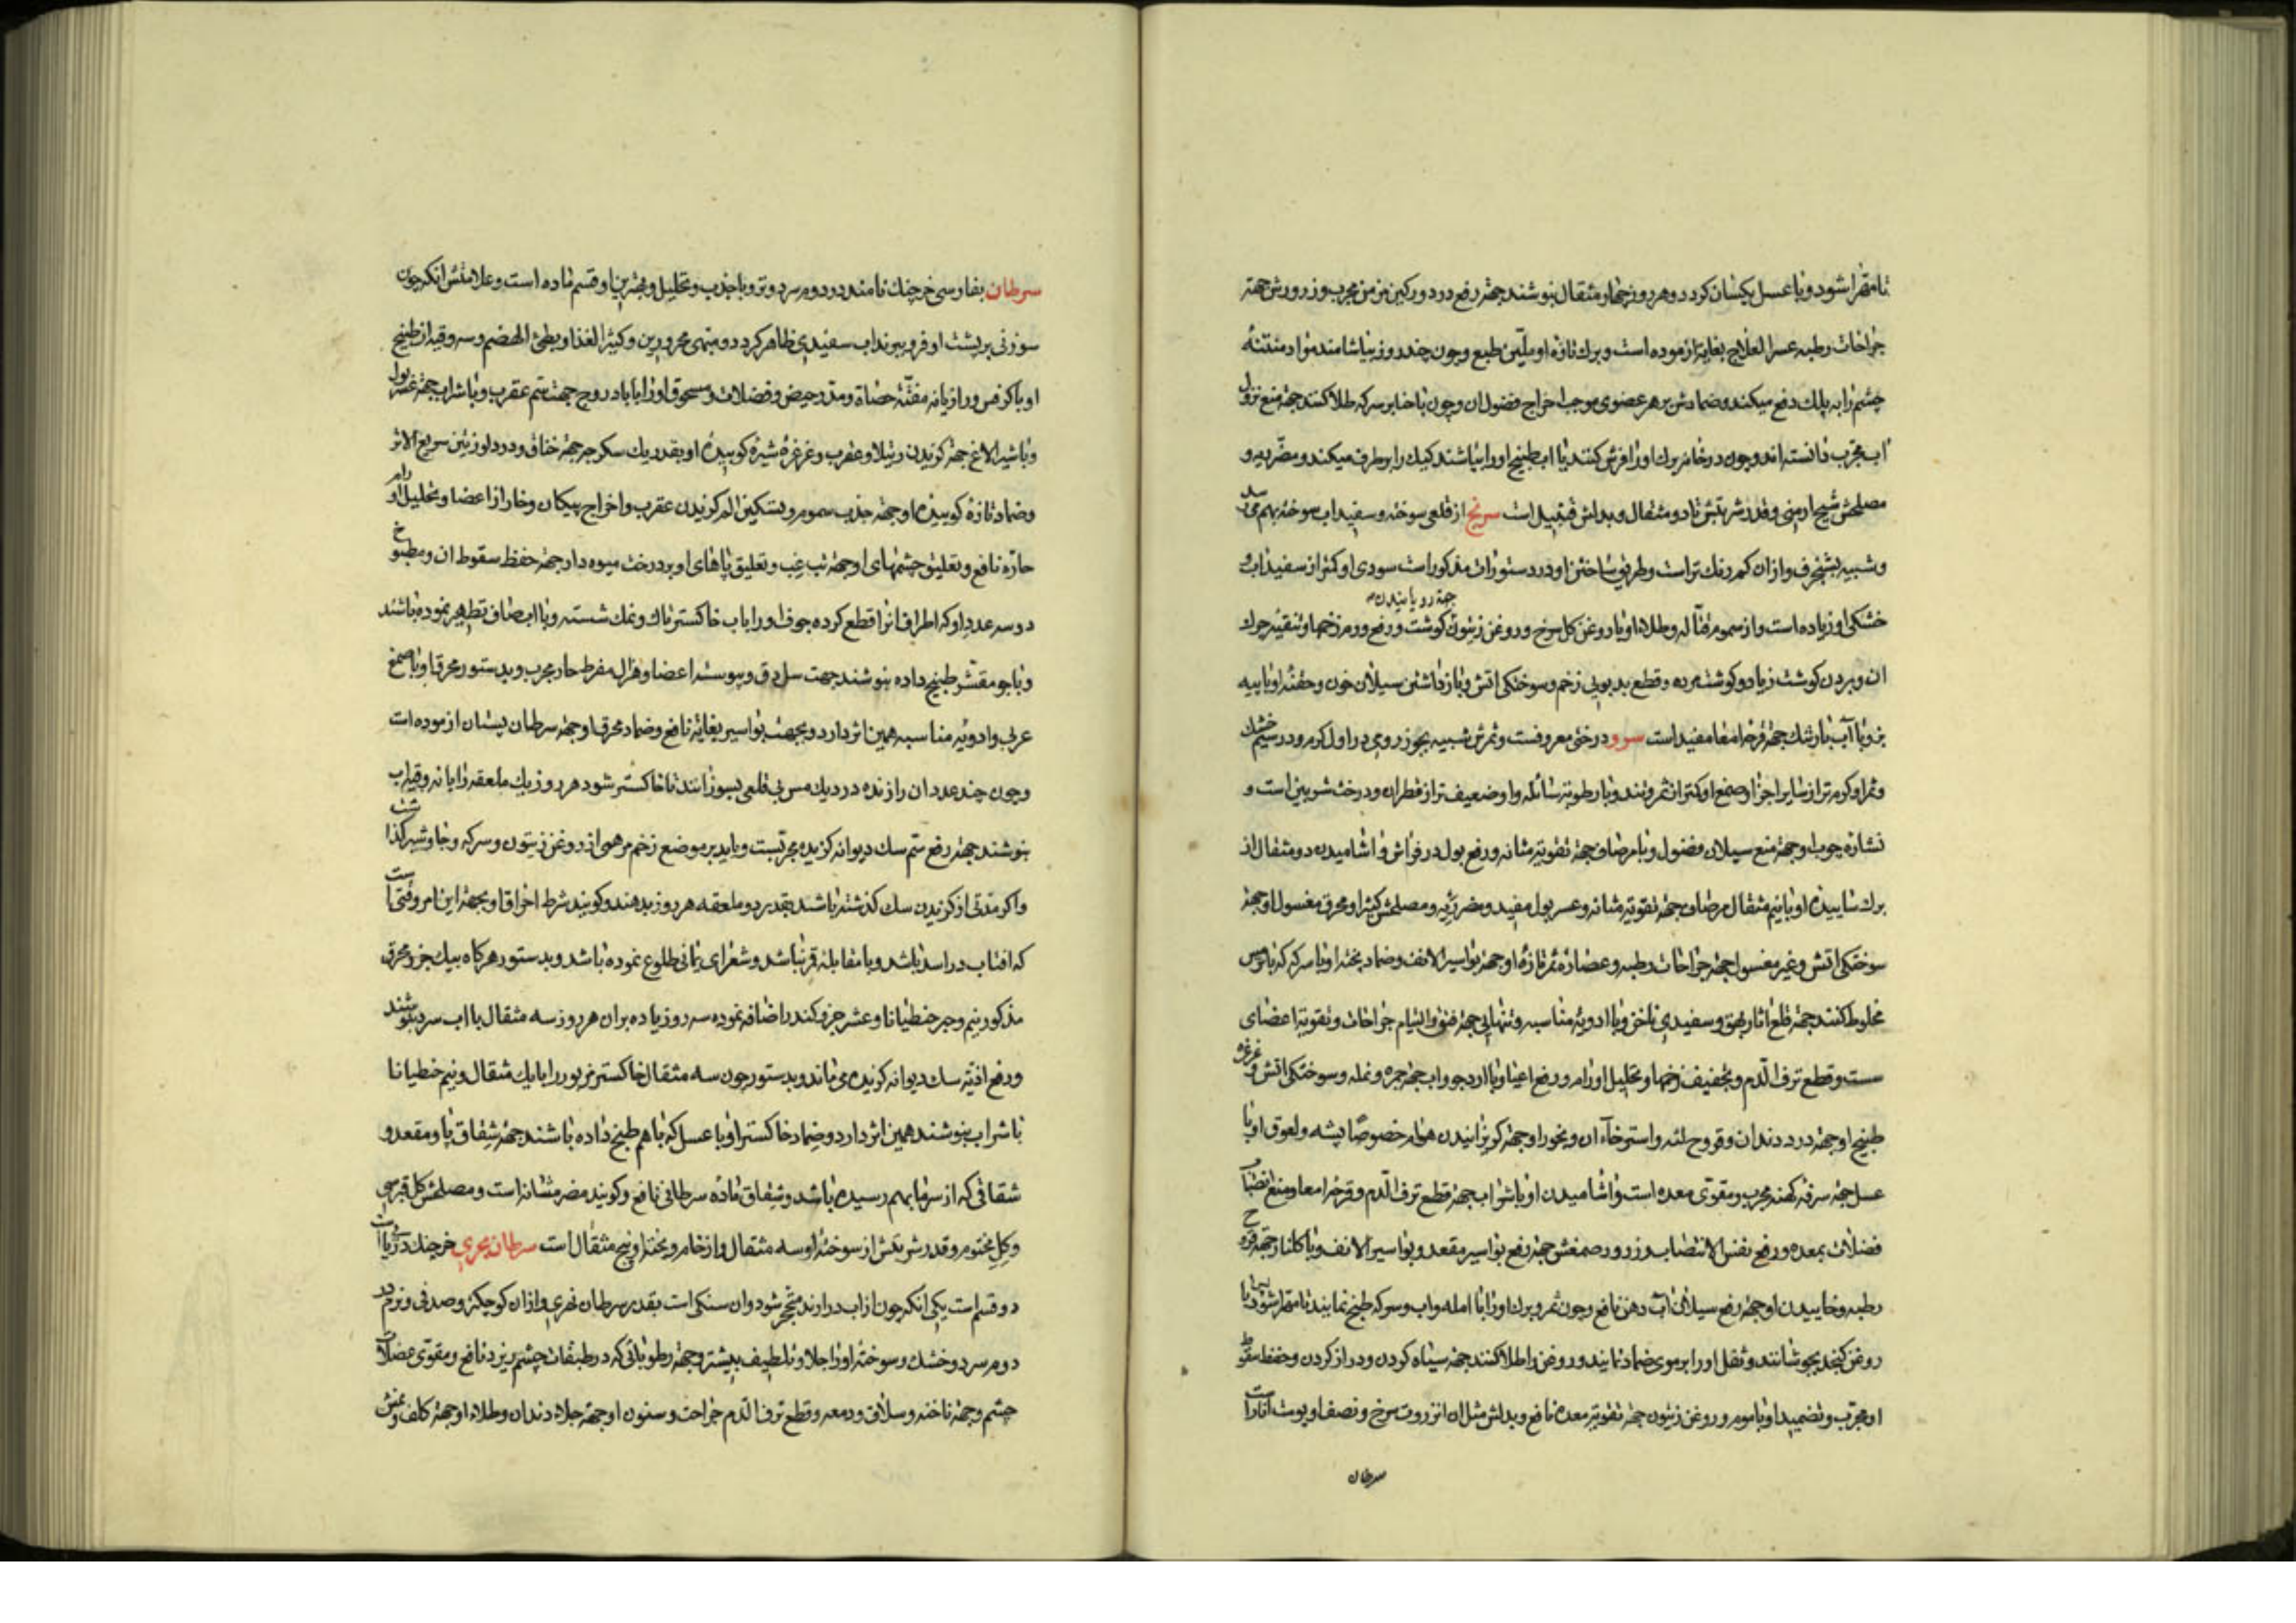 تا مهرا شود و با عسل یکسان کرده هر روز چهار مثقال بنوشند جهة رفع درد ورکین مزمن مجرب و زرورش جهة
جراحات رطبه عسر العلاج بغایة ازموده است و برك تازه او ملیّن طبع و چون چند روز بیاشامند مواد منتنه
چشم را به پلك دفع میکند و ضمادش بر هر عضوی موجب اخراج فضول ان و چون با حنا بر سر که طلا کنند جهة منع نزول
اب مجرب دانسته اند و چون در خانه برك او را فرش کنند یا اب طبیخ او را بپاشند کیك را برطرف میکند و مضر ریه و
مصلحش شیح ارمنی و قدر شربتش تا دو مثقال و بدلش قنبیل است سرنج از قلعی سوخته و سفیداب سوخته بهم میرسد
و شبیه بشنجرف و از ان کم رنك تر است و طریق ساختن او در دستورات مذکور است سودی او کمتر از سفیداب و
جهة رویانیدن
خشکی او زیاده است و از سموم قتاله و طلاء او با روغن کل سرخ و روغن زیتون کوشت و رفع ورم زخمها و تنقیه چرك
ان و بردن کوشت زیاد و کوشت مرده و قطع بدبویی زخم و سوختکی اتش و باز داشتن سیلان خون و حقنه او با پیه
بز و با آب بارتنك جهة قرحه امعا مفید است سرو درختی معروفست و ثمرش شبیه بجوز رومی در اول کرم و در سیم خشك
و ثمر او کرم تر از سایر اجزا و صمغ او کمتر از ثمر و تند و با رطوبة سائله و او ضعیف تر از قطران و درخت شربین است و
نشاره چوب او جهة منع سیلان فضول و با مر صاف جهة تقویة مثانه و رفع بول در فراش و اشامیدن دو مثقال از
برك ساییده او با نیم مثقال مر صاف جهة تقویة مثانه و عسر بول مفید و مضر ریه و مصلحش کثیرا و محرق مغسول او جهة
سوختکی اتش و غیر مغسول جهة جراحات رطبه و عصاره ثمر تازه او جهة بواسیر الانف و ضماد پخته او با سرکه که با ترمس
مخلوط کنند جهة قلع اثار بهق و سفیدی ناخن و با ادویه مناسبه و تنهایی جهة فتق و التیام جراحات و تقویة اعضای
سست و قطع نزف الدم و تجفیف زخمها و تحلیل اورام و رفع اعیا و با ارد جو و اب جهة جمره و نمله و سوختکی اتش و غرغره
طبیخ او جهة درد دندان و قروح لثه و استرخاء ان و بخور او جهة کریزانیدن هوام خصوصًا پشه و لعوق او با
عسل جهة سرفه کهنه مجرب و مقوی معده است و اشامیدن او با شراب جهة قطع نزف الدم و قرحه امعا و منع انصباب
فضلات بمعده و رفع نفس الانتصاب و زرور صمغش جهة رفع بواسیر مقعد و بواسیر الانف و با کلنار جهة قروح
رطبه و خاییدن او جهة رفع سیلان آب دهن نافع و چون ثمر و برك او را با امله و اب و سرکه طبخ نمایند تا مهرا شود پس با
روغن کنجد بجوشانند و ثفل او را بر موی ضماد نمایند و روغن را طلا کنند جهة سیاه کردن و دراز کردن و حفظ سقوط
او مجرب و تضمید او با موم و روغن زیتون جهة تقویة معده نافع و بدلش مثل ان انزروت سرخ و نصف او پوست انار است
سرطان
سرطان بفارسی خرچنك نامند در دوم سرد و تر و با جذب و تحلیل و بهترین او قسم ماده است و علامتش انکه چون
سوزنی بر پشت او فرو برند اب سفیدی ظاهر کردد و مبهی محرورین و کثیر الغذا و بطیء الهضم و سه وقیه از طبیخ
او با کرفس و رازیانه مفتّت حصاة و مدر حیض و فضلات و مسحوق او را با بادروج جهت سم عقرب و با شراب جهة عسر بول
و با شیر الاغ جهة کزیدن رتیلا و عقرب و غرغره شیره کوبیده او بقدر یك سکرجه جهة خناق و درد لوزتین سریع الاثر
و ضماد تازه کوبیده او جهة جذب سموم و تسکین الم کزیدن عقرب و اخراج پیکان و خار از اعضا و تحلیل اورام
حارّه نافع و تعلیق چشمهای او جهة تب غب و تعلیق پاهای او بر درخت میوه دار جهة حفظ سقوط ان و مطبوخ
دو سه عدد او که اطراف انرا قطع کرده جوف او را باب خاکستر تاك و نمك شسته و با اب صاف تطهیر نموده باشند
و با جو مقشّر طبخ داده بنوشند جهت سل و دق و یبوسة اعضا و هزال مفرط حار مجرب و بدستور محرق او با صمغ
عربی و ادویه مناسبه همین اثر دارد و بجهت بواسیر بغایة نافع و ضماد محرق او جهة سرطان پستان ازموده است
و چون چند عدد ان را زنده در دیك مس بی قلعی بسوزانند تا خاکستر شود هر روز یك ملعقه را با نه وقیه اب
بنوشند جهة رفع سم سك دیوانه کزیده مجربست و باید بر موضع زخم مرهمی از روغن زیتون و سرکه و جاوشیر کذاشت
و اکر مدتی از کزیدن سك کذشته باشد بقدر دو ملعقه هر روز بدهند و کویند شرط احراق او بجهة این امر وقتی است
که افتاب در اسد باشد و با مقابله قمر نباشد و شعرای یمانی طلوع نموده باشد و بدستور هرکاه بیك جزو محرق
مذکور نیم وجه جنطیانا و عشر جزو کندر اضافه نموده سه روز یا ده بران هر روز سه مثقال با اب سرد بنوشند
و رفع اذیّة سك دیوانه کزیده می نماند و بدستور چون سه مثقال خاکستر مزبور را با یك مثقال و نیم جنطیانا
با شراب بنوشند همین اثر دارد و ضماد خاکستر او با عسل که با هم طبخ داده باشند جهة شقاق پا و مقعد و
شقاقی که از سرما بهم رسیده باشد و شقاق ماده سرطانی نافع و کویند مضر مثانه است و مصلحش کل قبرسی
و کل مختوم و قدر شربتش از سوخته او سه مثقال و از خام و پخته او پنج مثقال است سرطان بحری خرچنك دریا است
دو قسم است یکی انکه چون از اب دراورند متحجر شود و ان سنکی است بقدر سرطان نهری و از ان کوچکتر و صدفی و نرم در
دوم سرد و خشك و سوخته او را جلا و تلطیف بیشتر و جهة رطوباتی که در طبقات چشم ریزد نافع و مقوی عضلات
چشم و جهة ناخنه و سلاق و دمعه و قطع نزف الدم جراحت و سنون او جهة جلاء دندان و طلاء او جهة کلف و نمش